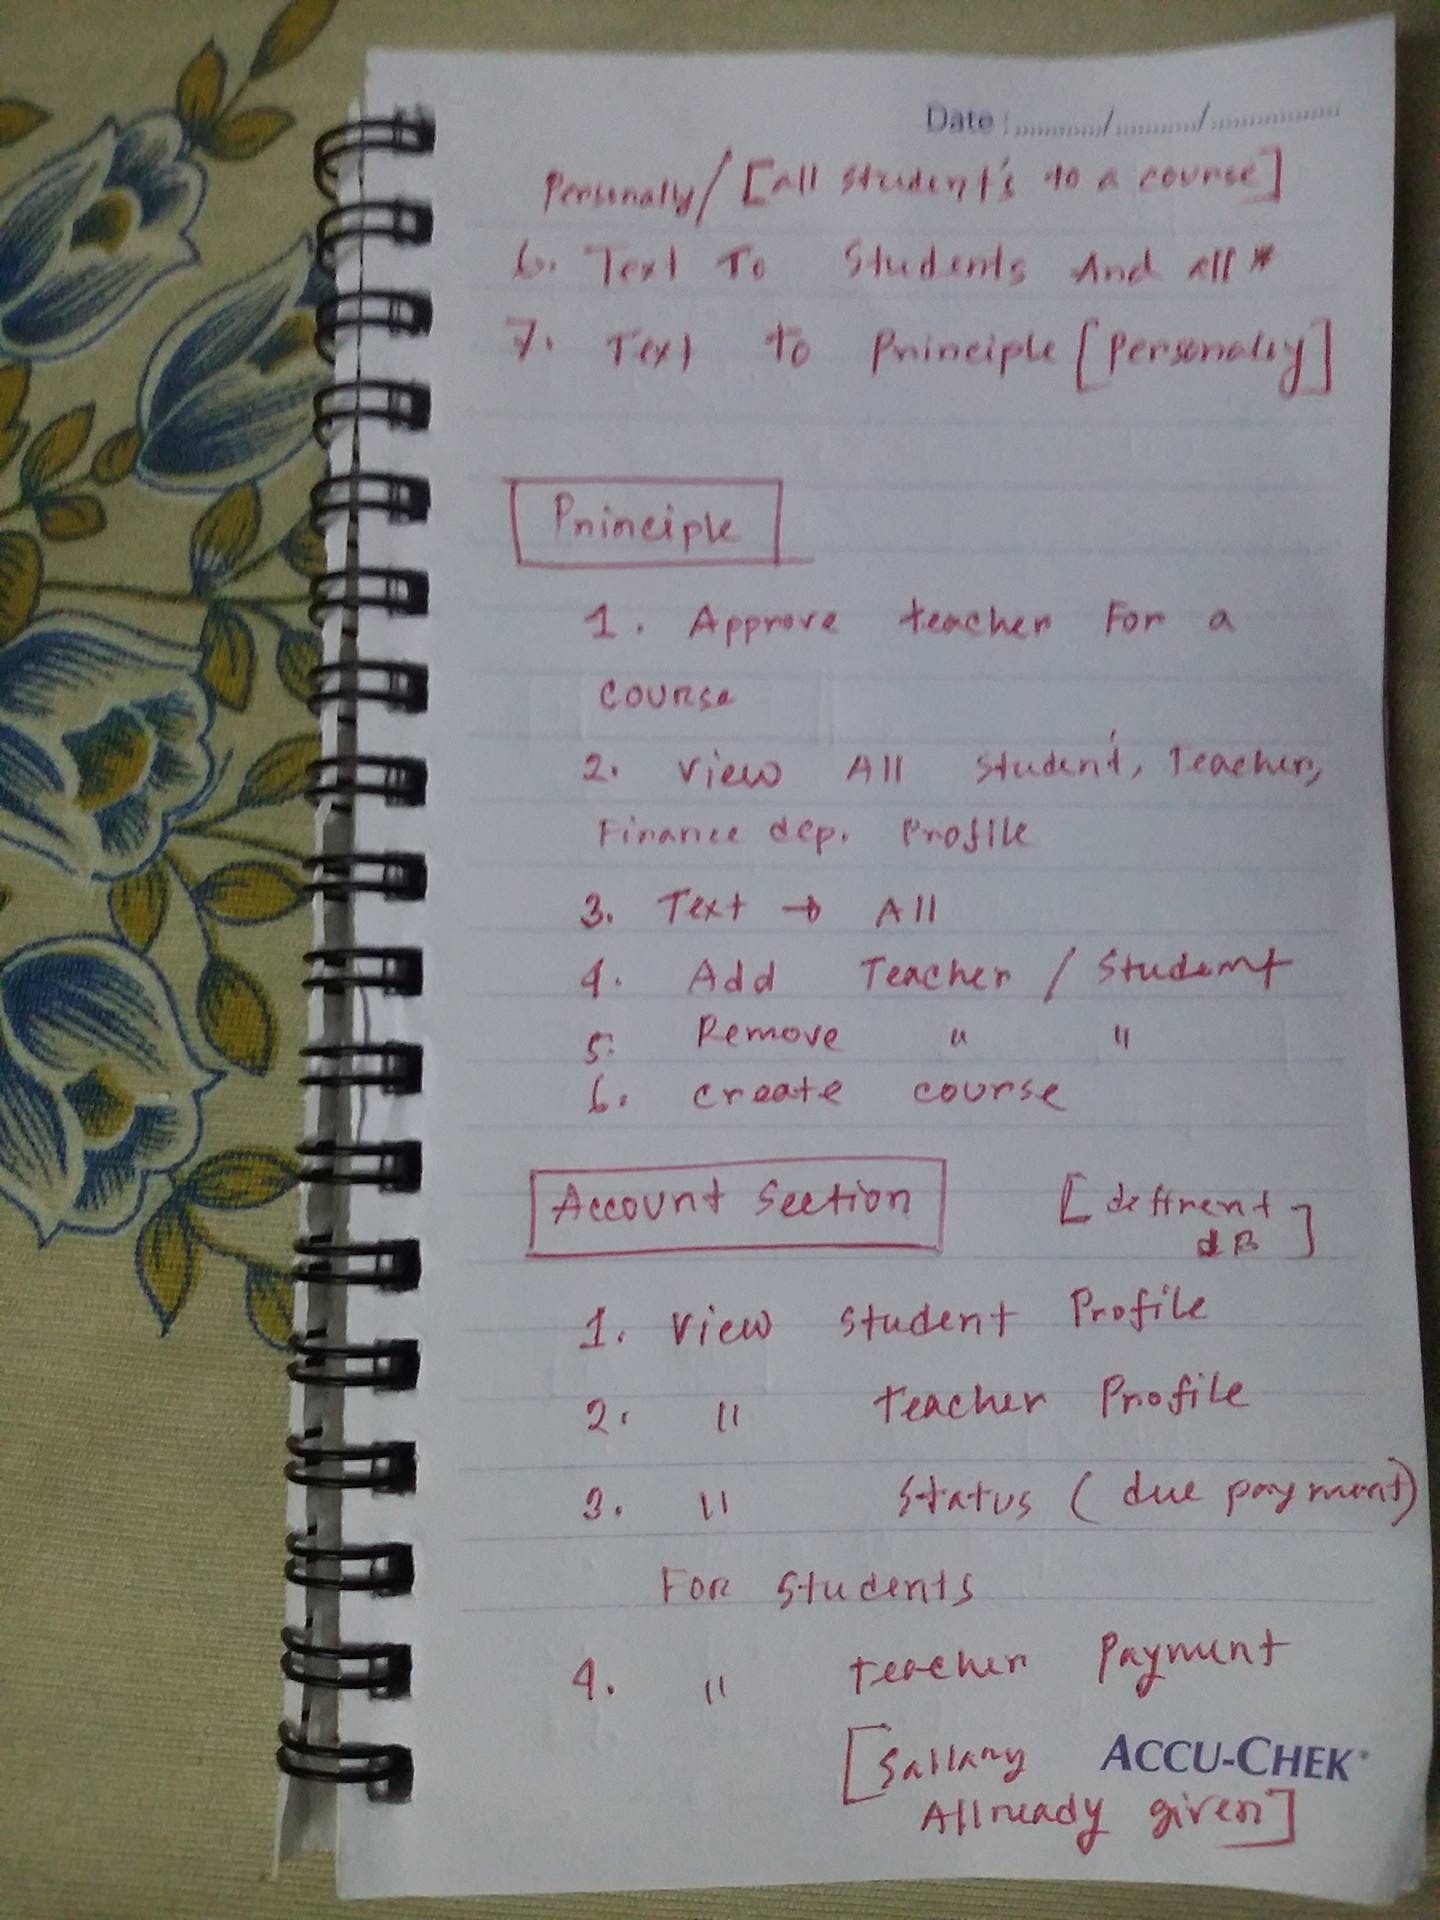 Date : ......../......../............
Personally/[all student's to a course]
6. Text To Students And all *
7. Text to Principle [Personaly]
Principle
1. Approve teacher For a
course
2. View All Student, Teacher,
Finance dep. Profile
3. Text → All
4. Add Teacher / Student
5. Remove " "
6. create course
Account Section [deffrent
dB]
1. View Student Profile
2. " Teacher Profile
3. " Status (due payment)
For Students
4. " teacher Payment
[Sallary ACCU-CHEK®
Allready given]